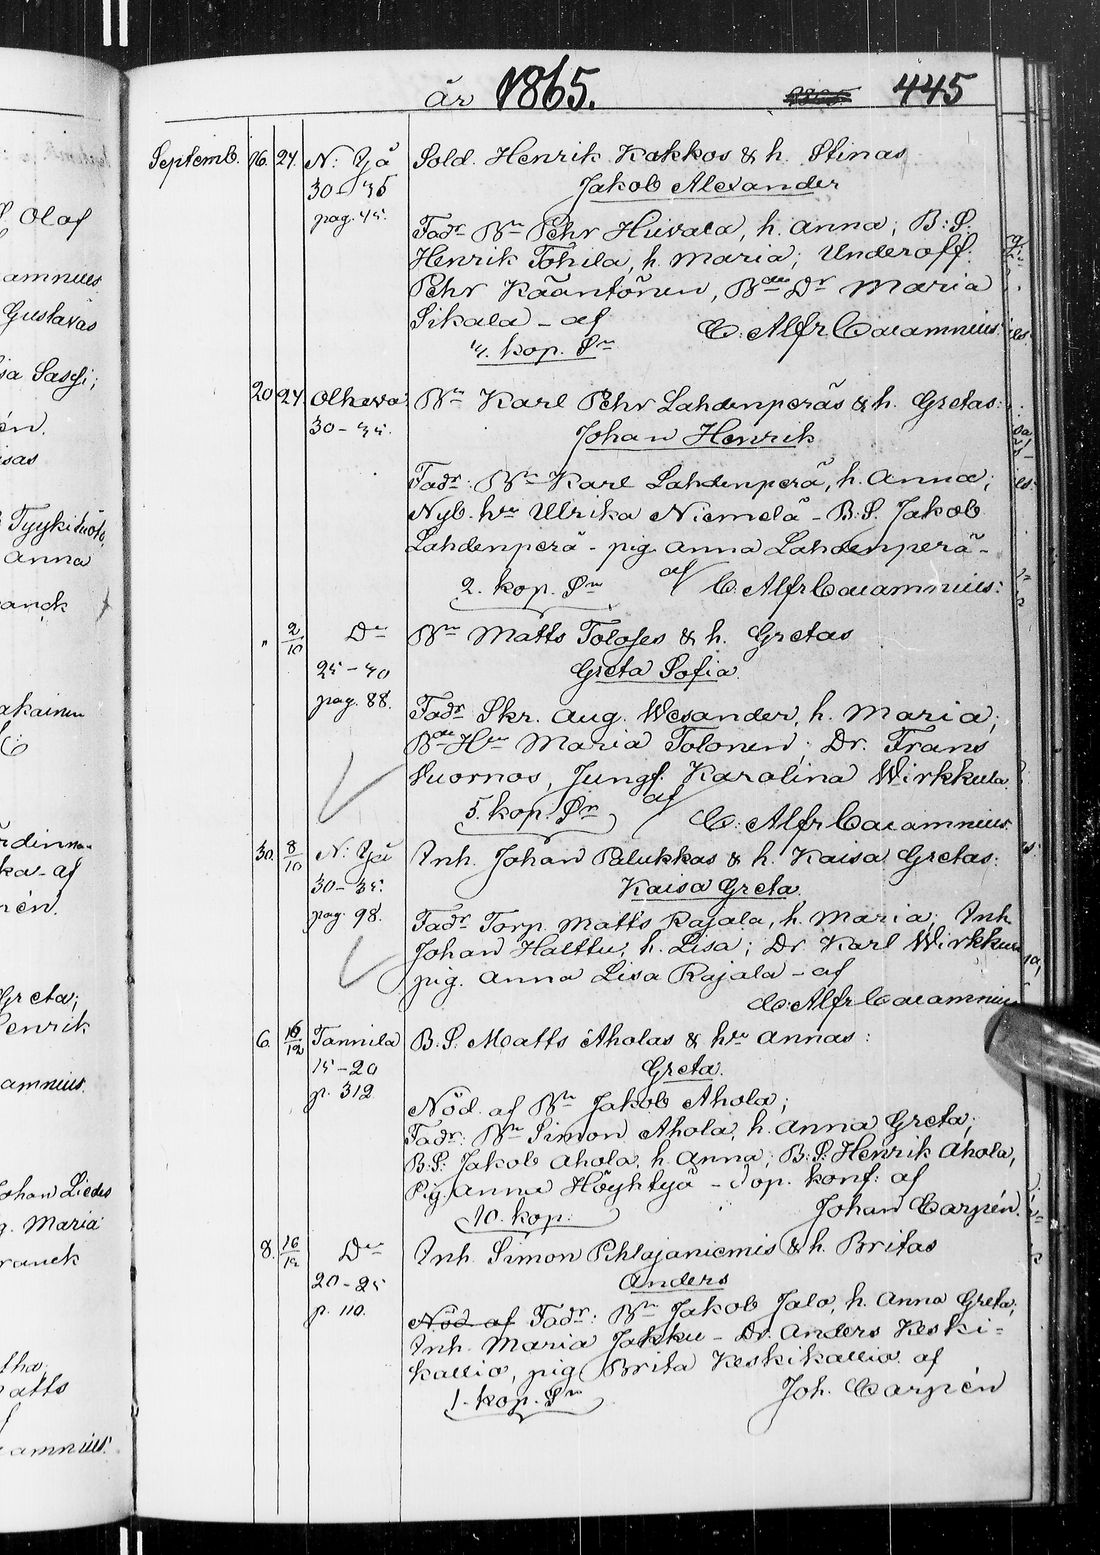 år 1865. 445
Septemb. 16. 24. N: Ijå Sold. Henrik Kokkos & h. Stinas
30-35 Jakob Alexander
pag. 45. Fadr Bn Pehr Huvala, h. Anna; B: S.
Henrik Tohila, h. Maria; Underoff.
Pehr Kääntönen, Bde Dr Maria
Sikala - af C. Alfr Calamnius.
4. kop. Sr
20 24. Olhava Bn Karl Pehr Lahdenperäs & h. Gretas:
30-35. Johan Henrik
Fadr: Bn Karl Lahdenperä, h. Anna;
Nyb. hu Ulrika Niemelä - B: S. Jakob
Lahdenperä - pig. Anna Lahdenperä -
2. kop. Sr af C. Alfr Calamnius:
" 2/10 Do Bn Matts Tolosjes & h. Gretas
25-30 Greta Sofia.
pag. 88. Fadr Skr. Aug. Wesander, h. Maria;
Bde Hu Maria Tolonen; Dr. Frans
Suornos, Jungf. Karolina Wirkkula
5. kop. Sr af C: Alfr Calamnius.
30. 8/10 N: Ijå Inh. Johan Palukkas & h. Kaisa Gretas:
30-35. Kaisa Greta.
pag. 98. Fadr Torp. Matts Rajala, h. Maria; Inh
Johan Halttu, h. Lisa; Dr Karl Wirkkula
pig. Anna Lisa Rajala - af
C: Alfr Calamnius
6. 16/12 Tannila B: S. Matts Aholas & hu Annas:
15-20 Greta.
p. 312 Nöd. af Bn Jakob Ahola;
Fadr: Bn Simon Ahola, h. Anna Greta;
B: S: Jakob Ahola, h. Anna; B: S: Henrik Ahola,
Pig. Anna Höyhtyä - Dop. konf: af
10. kop: Johan Carpén.
8. 16/12 Do Inh. Simon Pehlajaniemis & h. Britas
20-25 Anders
p. 110. Nöd af Fadr: Bn Jakob Jalo, h. Anna Greta;
Inh. Maria Jakku - Dr. Anders Keski-
kallio, pig Brita Keskikallio. af
1. kop. Sr Joh. Carpén